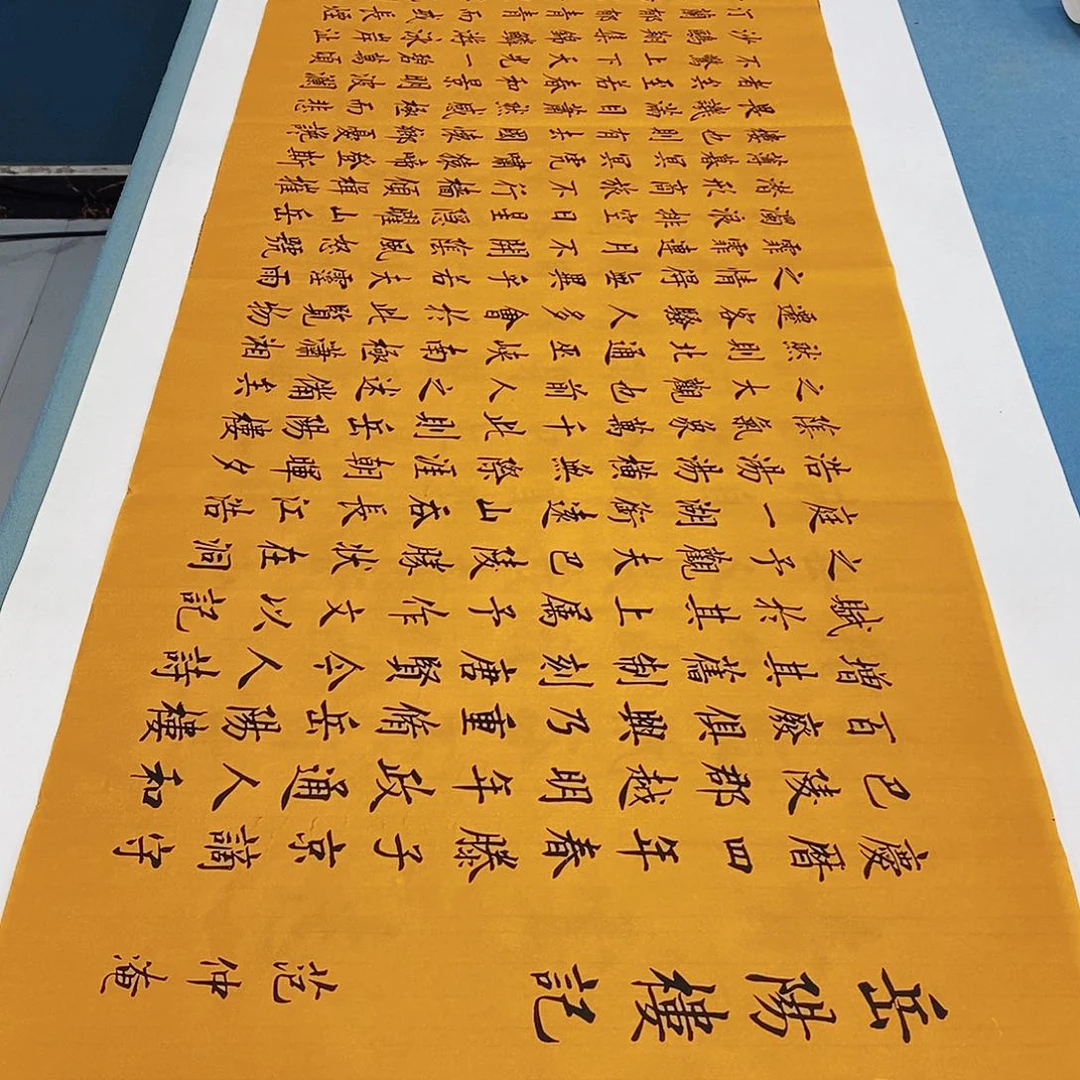 岳陽樓記 范仲淹
慶曆四年春滕子京謫守
巴陵郡越明年政通人和
百廢俱興乃重脩岳陽樓
增其舊制刻唐賢今人詩
賦於其上屬予作文以記
之予觀夫巴陵勝狀在洞
庭一湖銜遠山吞長江浩
浩湯湯橫無際涯朝暉夕
陰氣象萬千此則岳陽樓
之大觀也前人之述備矣
然則北通巫峽南極瀟湘
遷客騷人多會於此覽物
之情得無異乎若夫霪雨
霏霏連月不開陰風怒號
濁浪排空日星隱曜山岳
潛形商旅不行檣傾楫摧
薄暮冥冥虎嘯猿啼登斯
樓也則有去國懷鄉憂讒
畏譏滿目蕭然感極而悲
者矣至若春和景明波瀾
不驚上下天光一碧萬頃
沙鷗翔集錦鱗游泳岸芷
汀蘭郁郁青青而或長煙